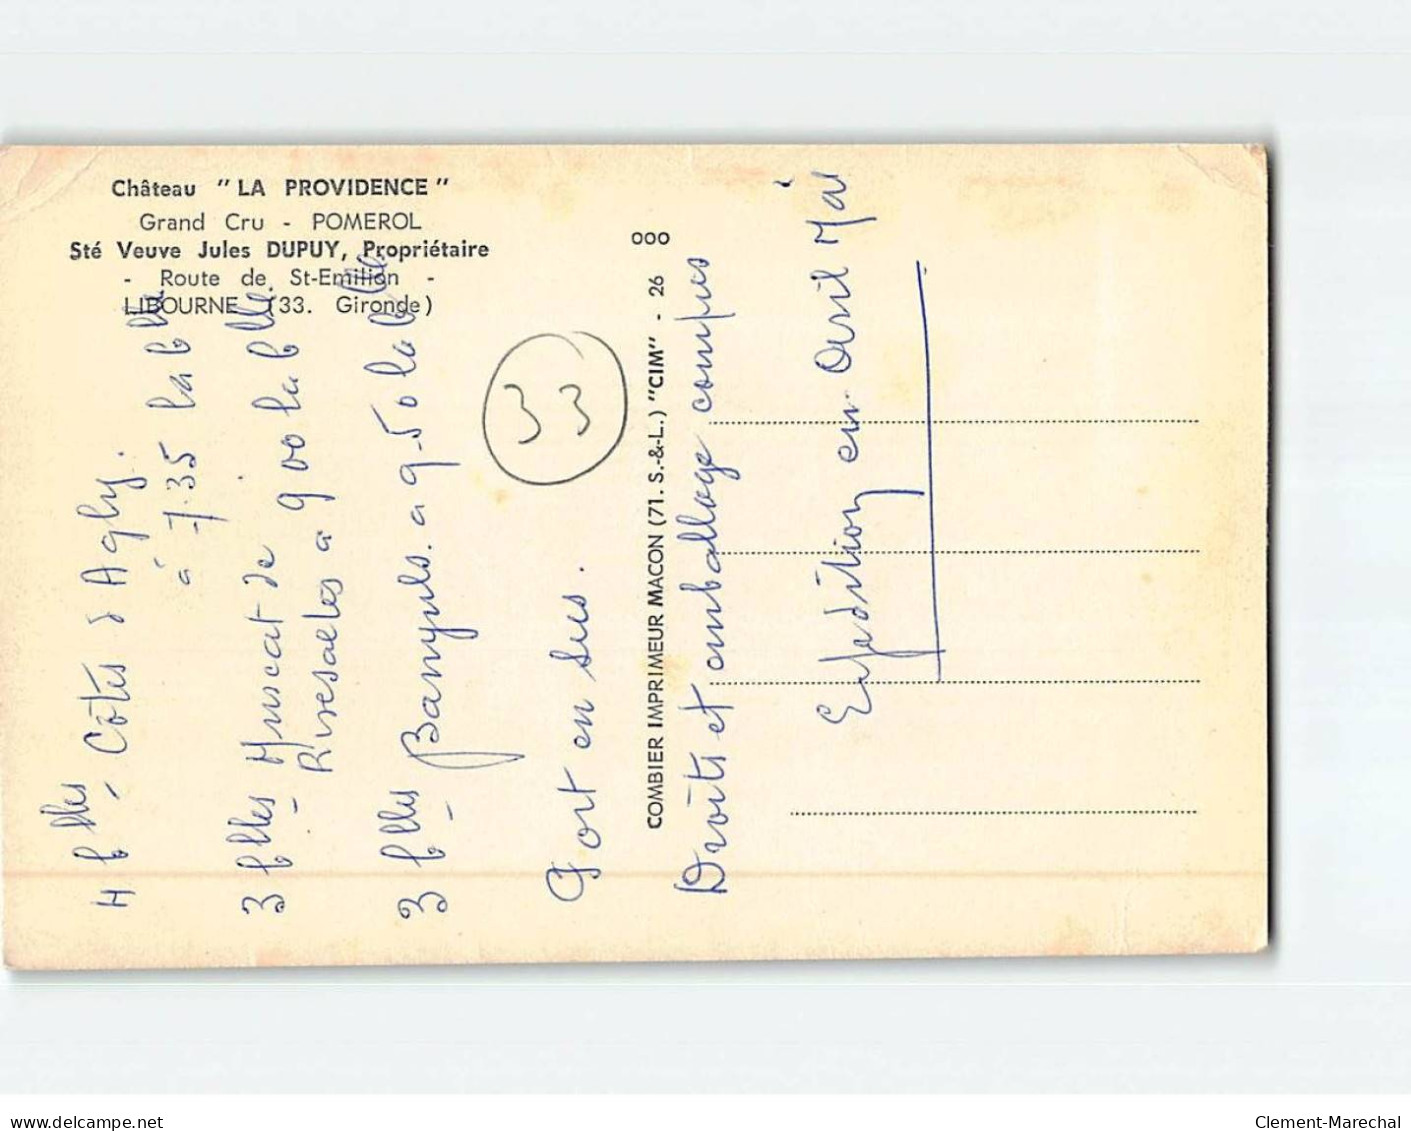 Château " LA PROVIDENCE "
Grand Cru - POMEROL
Sté Veuve Jules DUPUY, Propriétaire
- Route de St-Emilion -
LIBOURNE (33. Gironde)
4 blles Côtes d'Agly.
à 7.35 la blle
3 blles Muscat de
Rivesaltes à 9 00 la blle
3 blles Banyuls. a 9.50 la blle
Port en sus.
33
COMBIER IMPRIMEUR MACON (71. S.-&-L.) "CIM" - 26 000
Droits et emballage compris
Expédition en Avril Mai
delcampe.net
Clement-Marechal